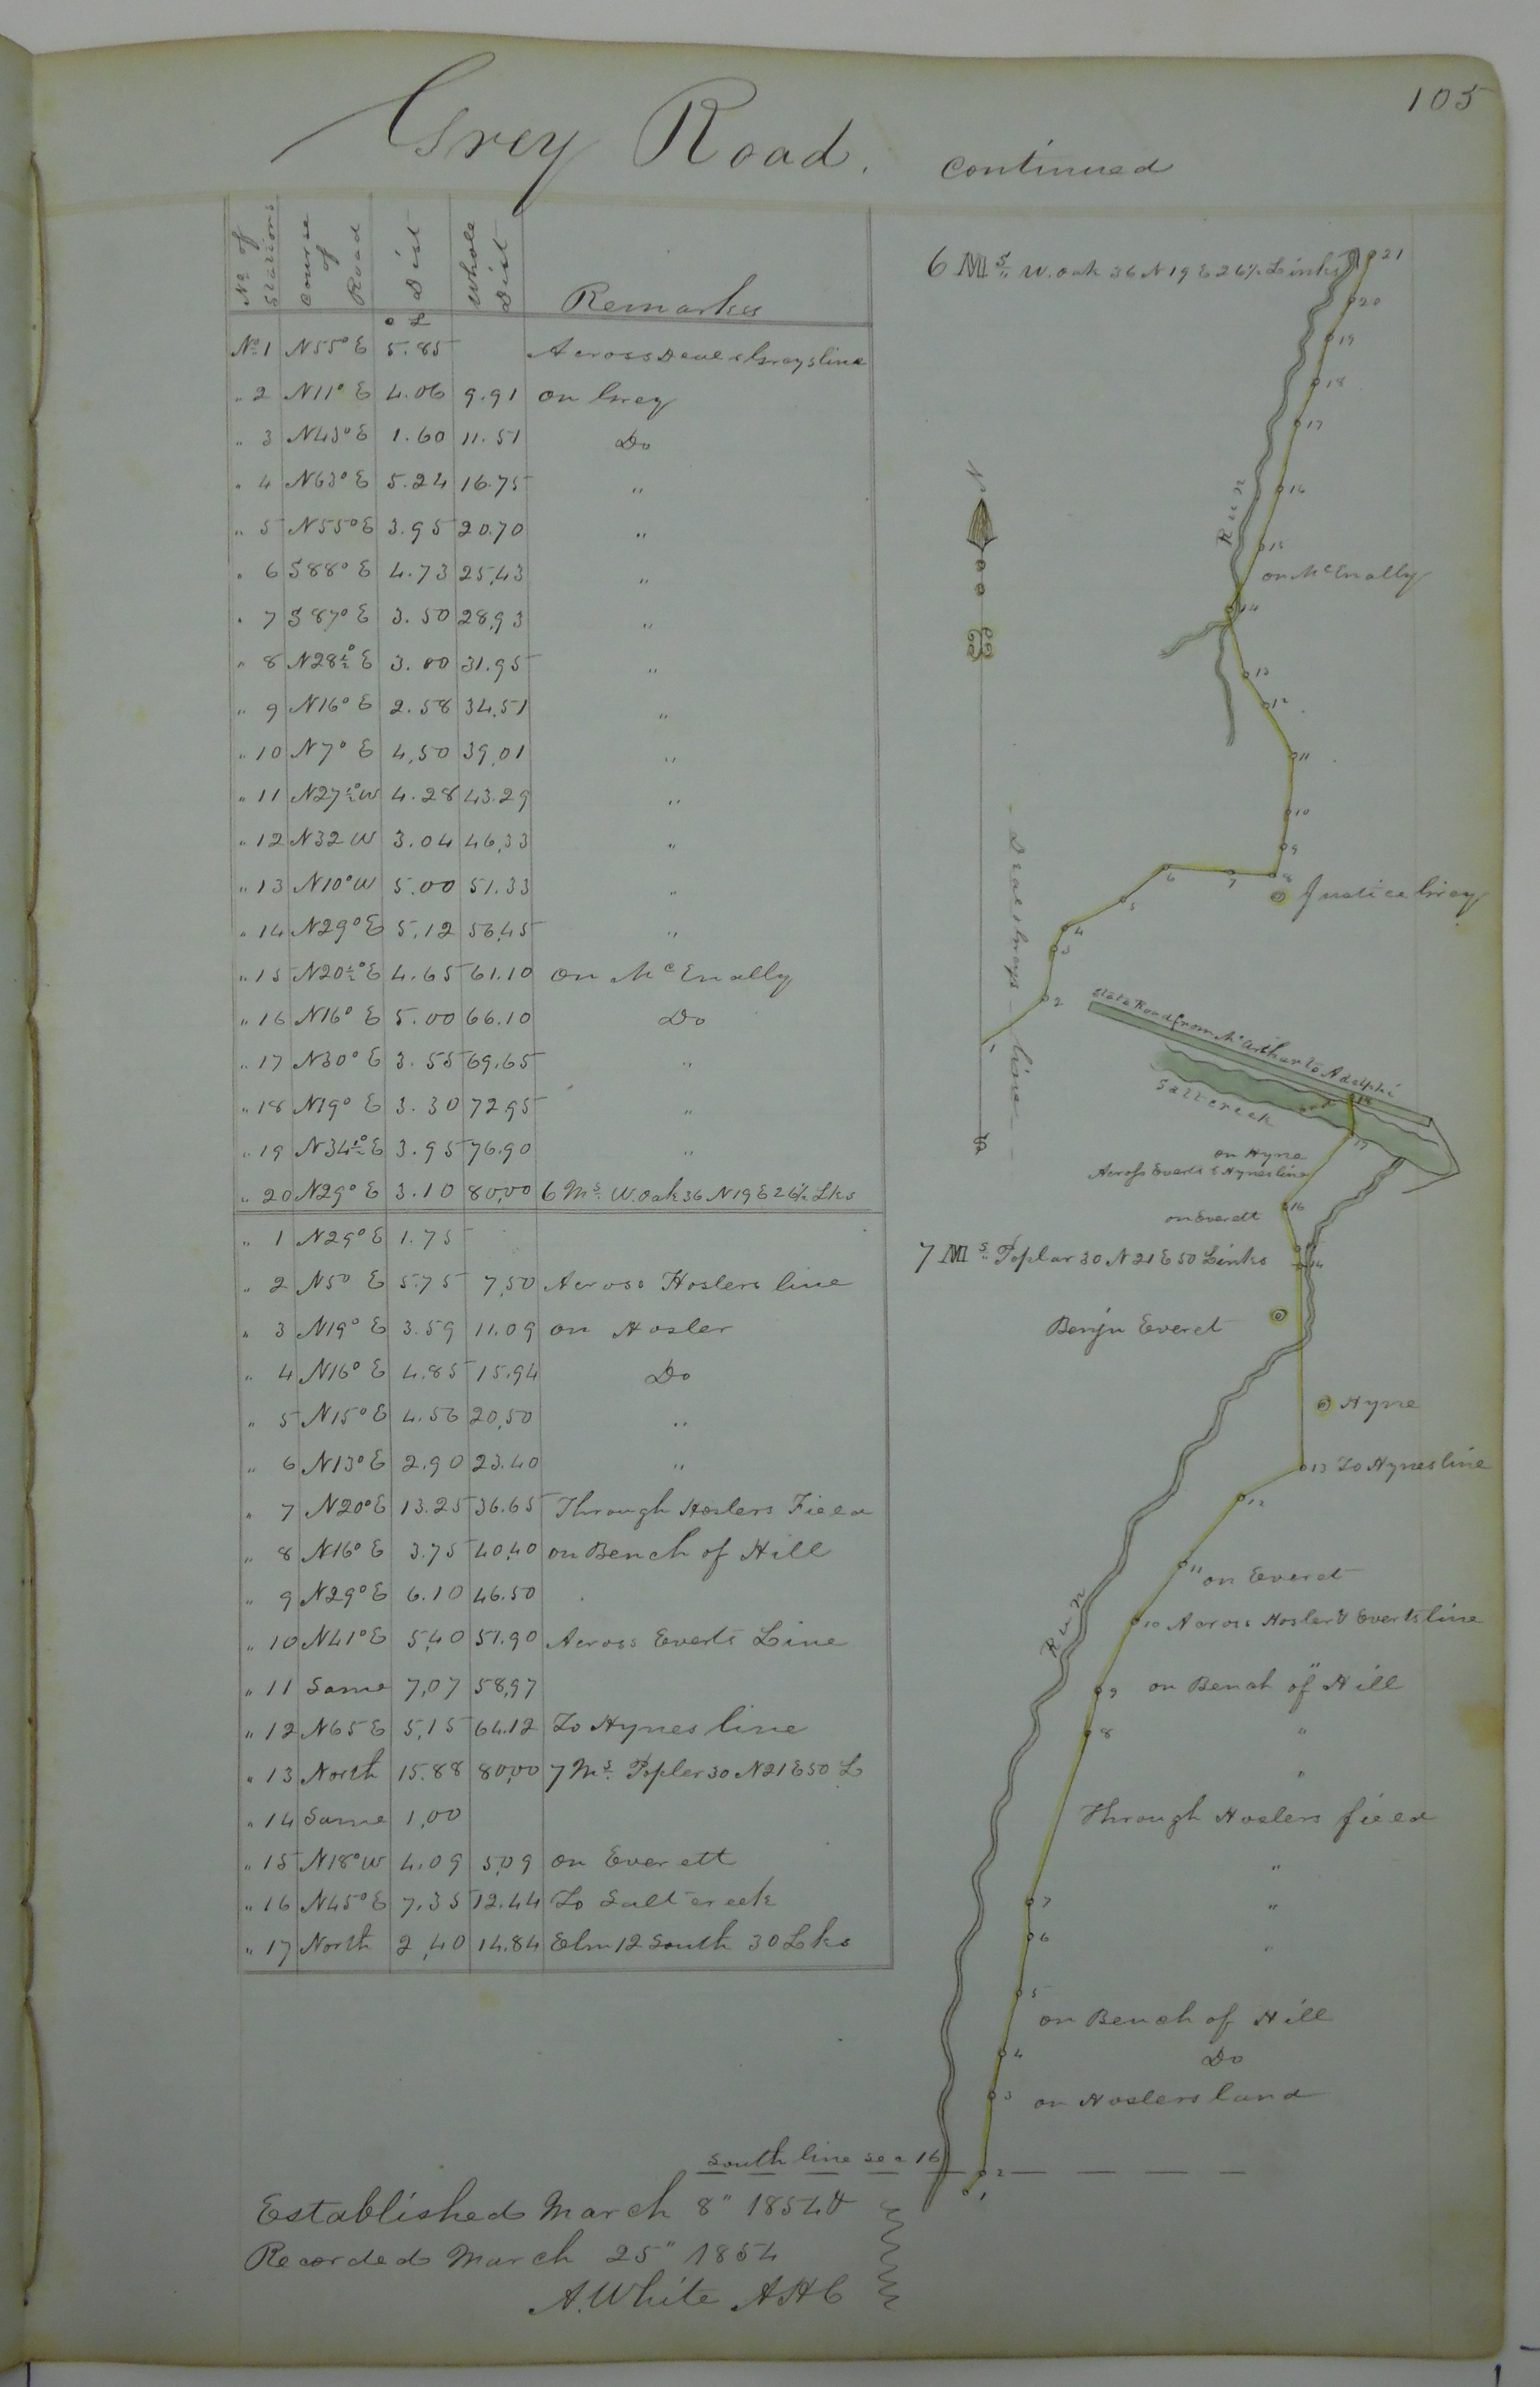 105
Grey Road. Continued
No of Stations | Course of Road | Dist | Whole Dist | Remarks
c L
No 1 N55° E 5.85 Across Deue & Greys line
" 2 N11° E 4.06 9.91 on Grey
" 3 N43° E 1.60 11.51 Do
" 4 N63° E 5.24 16.75 "
" 5 N55° E 3.95 20.70 "
" 6 S88° E 4.73 25,43 "
" 7 S87° E 3.50 28,93 "
" 8 N28½° E 3.00 31.95 "
" 9 N16° E 2.58 34.51 "
" 10 N7° E 4,50 39,01 "
" 11 N27½° W 4.28 43.29 "
" 12 N32 W 3.04 46,33 "
" 13 N10° W 5.00 51.33 "
" 14 N29° E 5.12 56,45 "
" 15 N20½° E 4.65 61.10 on McEnally
" 16 N16° E 5.00 66.10 Do
" 17 N30° E 3.55 69.65 "
" 18 N19° E 3.30 72.95 "
" 19 N34½° E 3.95 76.90 "
" 20 N29° E 3.10 80,00 6 Ms. W. Oak 36 N19 E 26½ Lks
" 1 N29° E 1.75
" 2 N5° E 5.75 7,50 Across Hoslers line
" 3 N19° E 3.59 11.09 on Hosler
" 4 N16° E 4.85 15.94 Do
" 5 N15° E 4.56 20,50 "
" 6 N13° E 2.90 23.40 "
" 7 N20° E 13.25 36.65 Through Hoslers Field
" 8 N16° E 3.75 40,40 on Bench of Hill
" 9 N29° E 6.10 46.50
" 10 N41° E 5,40 51.90 Across Everts Line
" 11 Same 7,07 58,97
" 12 N65 E 5,15 64.12 To Hynes line
" 13 North 15.88 80,00 7 Ms. Popler 30 N21 E 50 L
" 14 Same 1,00
" 15 N18° W 4.09 5,09 on Everett
" 16 N45° E 7.35 12.44 To Salt creek
" 17 North 2,40 14.84 Elm 12 South 30 Lks
Established March 8" 1854 &
Recorded March 25" 1854
A. White AHC
6 Ms. W. oak 36 N 19 E 26½ Links
21
20
19
18
17
16
Run
15
on McEnally
14
N
13
12
11
10
9
8
7
6
Justice Grey
5
4
3
2
1
line
S
State Road from McArthur to Adelphi
Salt creek
18
17
on Hyne
Across Everts & Hynes line
16
on Everett
7 Ms. Poplar 30 N 21 E 50 Links
14
Benjn Everet
Hyne
13 To Hynes line
12
11 on Everet
10 Across Hosler & Everts line
Run
9 on Bench of Hill
8 "
"
Through Hoslers field
"
7 "
6 "
5
on Bench of Hill
4 Do
3 on Hoslers land
South line sec 16
2
1